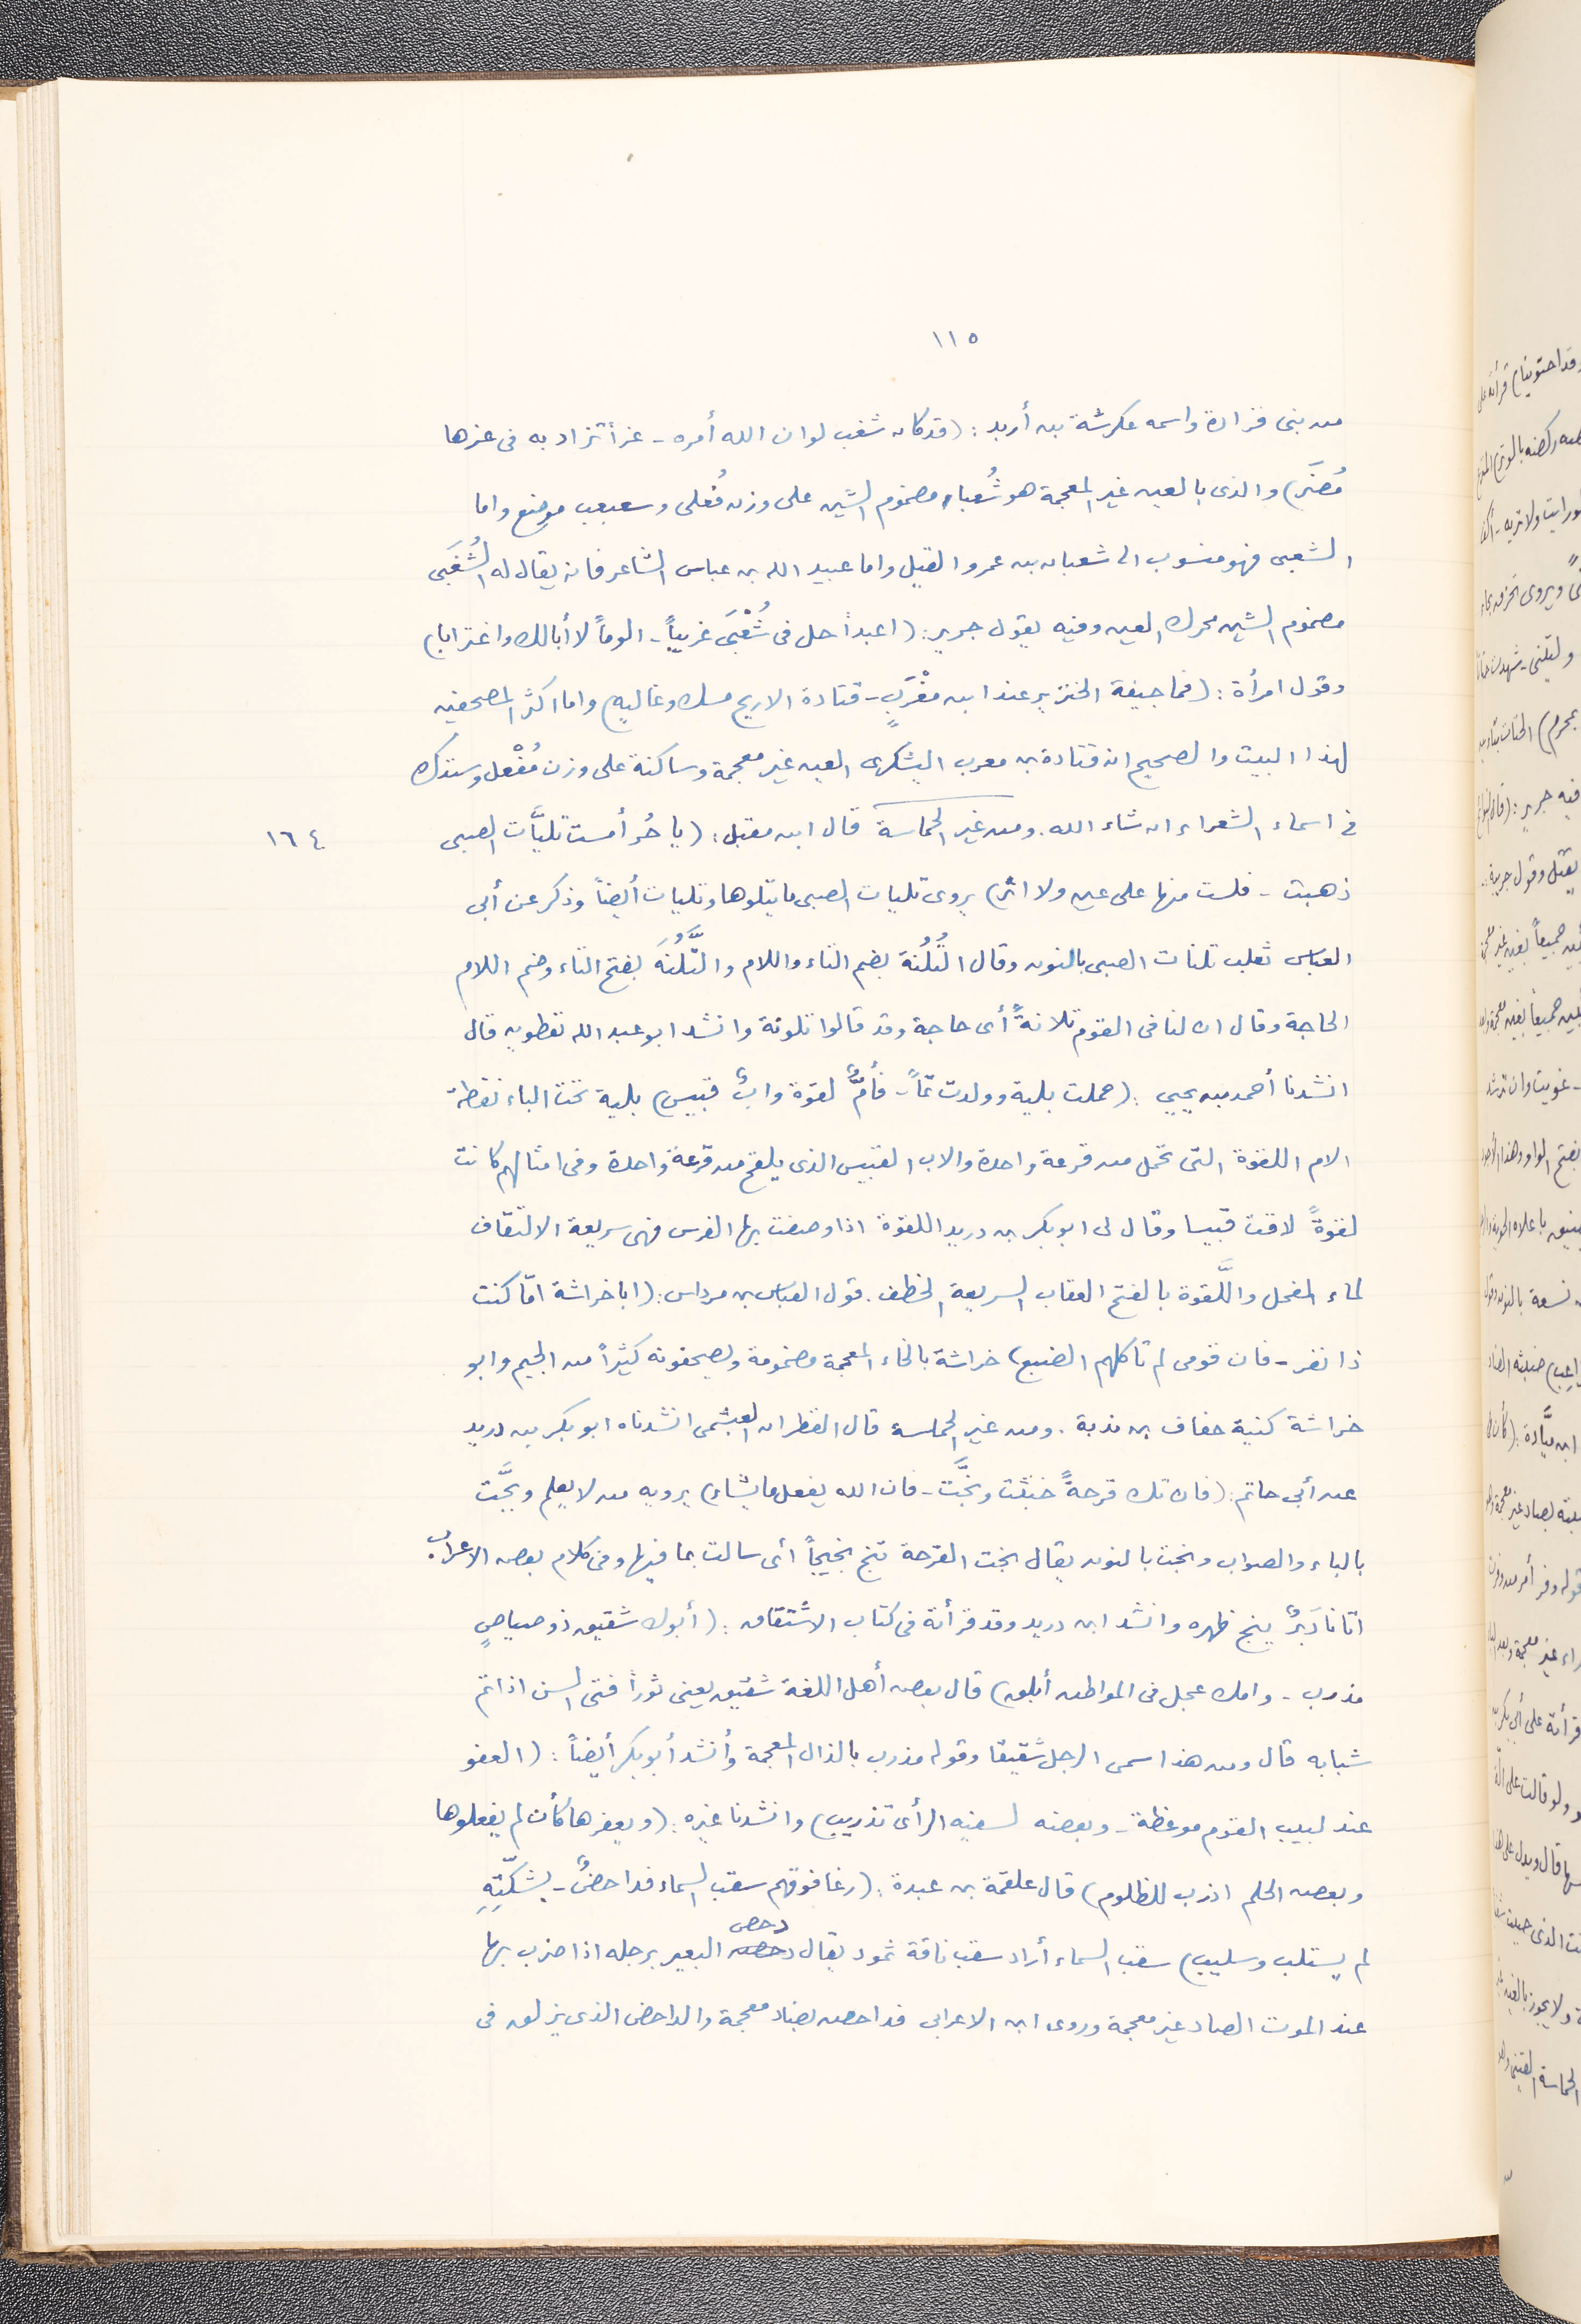 ١١٥
من بنى فزارة واسمه عكرشة بن أربد : (قد كان شغب لو ان الله أمره - عزاً تزاد به فى عزها
مُضَر) والذى بالعين غير المعجمة هو شُعباء مضموم الشين على وزن فُعلى وسعبعب موضع واما
الشعبى فهو منسوب الى شعبان بن عمرو القيل واما عبيد الله بن عباس الشاعر فانه يقال له الشُعَبى
مضموم الشين محرك العين وفيه يقول جرير : (اعبداً حل فى شُعَبى غريباً - الوماً لا أبالك واغترابا)
وقول امرأة : (فما جيفة الخنزير عند ابن مغْرَبٍ - قتادة الا ريح مسك وغاليه) واما اكثر المصحفين
لهذا البيت والصحيح انه قتادة بن معرب اليشكرى العين غير معجمة وساكنة على وزن مُفْعل وستذك
فى اسماء الشعراء ان شاء الله . ومن غير الحماسة قال ابن مقبل : (يا حُر أمست تليَّات الصبى
١٦٤
ذهبت - فلست منها على عين ولا اثر) يروى تليات الصبى ما يتلوها وتليات أيضاً وذكر عن أبى
العباس ثعلب تلنات الصبى بالنون وقال التُلُنة بضم التاء واللام والتَّلُنَة بفتح التاء وضم اللام
الحاجة وقال ان لنا فى القوم تلانةً أى حاجة وقد قالوا تلونة وانشد ابو عبد الله نفطويه قال
انشدنا أحمد بن يحيى : (حملت بلية وولدت تماً - فأُمٌّ لقوة وابٌ قبيس) بلية تحت الباء نقطة
الام اللقوة التى تحمل من قرعة واحدة والاب القبيس الذى يلقح من قرعة واحدة وفى امثالهم كانت
لقوةً لاقت قبيسا وقال لى ابو بكر بن دريد اللقوة اذا وصفت بها الفرس فهى سريعة الالتقاف
لماء الفحل واللَّقوة بالفتح العقاب السريعة الخطف . قول العباس بن مرداس : (ابا خراشة امّا كنت
ذا نفر - فان قومى لم تاكلهم الضبع) خراشة بالخاء المعجمة مضمومة ويصحفونه كثيراً من الجيم وابو
خراشة كنية خفاف بن ندبة . ومن غير الحماسة قال القطران العبشمى انشدناه ابو بكر بن دريد
عن أبى حاتم : (فان تك قرحةً خبثت ونجَّت - فان الله يفعل ما يشاء) يرويه من لا يعلم وبجَّت
بالباء والصواب ونجت بالنون يقال نجت القرحة تنج نجيجاً أى سالت بما فيها وفى كلام بعض الاعراب .
اتانا دَبَرٌ ينج ظهره وانشد ابن دريد وقد قرأته فى كتاب الاشتقاق : (أبوك شقيق ذو صياصٍ
مذرب - وامك عجل فى المواطن أبلق) قال بعض أهل اللغة شقيق يعنى ثوراً فتى السن اذا تم
شبابه قال ومن هذا سمى الرجل شقيقا وقوله مذرب بالذال المعجمة وأنشد أبو بكر أيضاً : (العفو
عند لبيب القوم موعظة - وبعضه لسفيه الرأى تذريب) وانشدنا غيره : (ويعفرها كأن لم يفعلوها
وبعض الحلم اذرب للظلوم) قال علقمة بن عبدة : (رغا فوقهم سقب السماء فداحضٌ - بشكّتِهِ
لم يستلب وسليب) سقب السماء أراد سقب ناقة ثمود يقال دحص البعير برجله اذا ضرب بها
عند الموت الصاد غير معجمة وروى ابن الاعرابى فداحض بضاد معجمة والداحض الذى يزلق فى